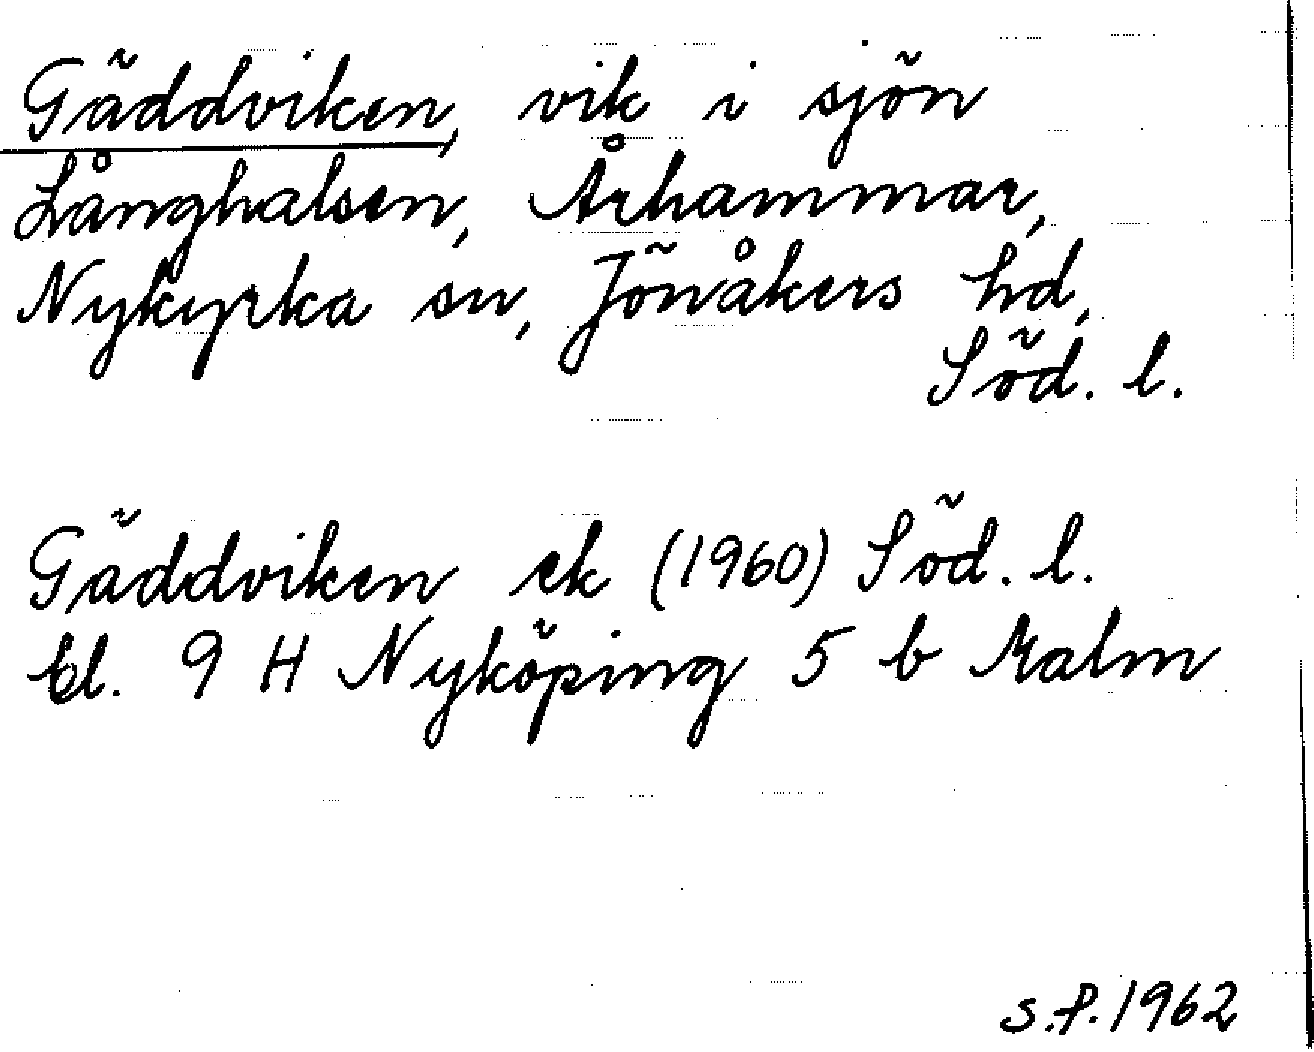 Gäddviken, vik i sjön
Långhalsen, Århammar,
Nykyrka sn, Jönåkers hd,
Söd. l.
Gäddviken ek (1960) Söd. l.
bl. 9 H Nyköping 5 b Malm
s.f. 1962